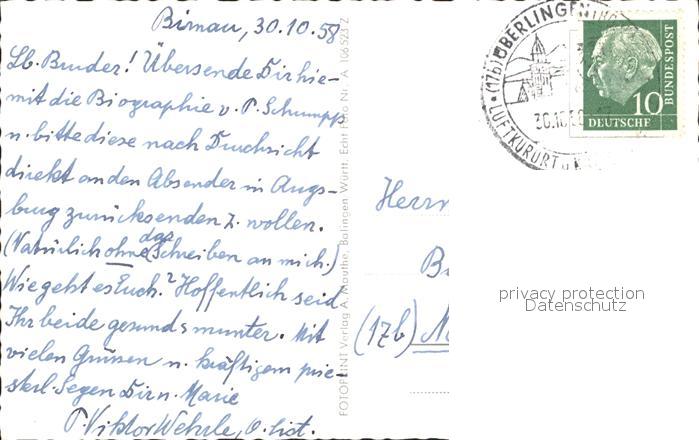 Birnau, 30.10.58
Lb. Bruder! Übersende Dir hie-
mit die Biographie v. P. Schrumpf
u. bitte diese nach Durchsicht
direkt an den Absender in Augs-
burg zurücksenden z. wollen.
(Natürlich ohne das Schreiben an mich.)
Wie geht es Euch? Hoffentlich seid
Ihr beide gesund u. munter. Mit
vielen Grüssen u. kräftigem prie-
sterl. Segen Dir u. Marie
P. Viktor Wehrle, O. Cist.
FOTOPRINT Verlag A. Mauthe, Balingen Württ. Echt Foto Nr. A 106523 Z
(17b) ÜBERLINGEN
30.10.58
LUFTKURORT u.
10
DEUTSCHE
BUNDESPOST
Herrn
(17b)
privacy protection
Datenschutz